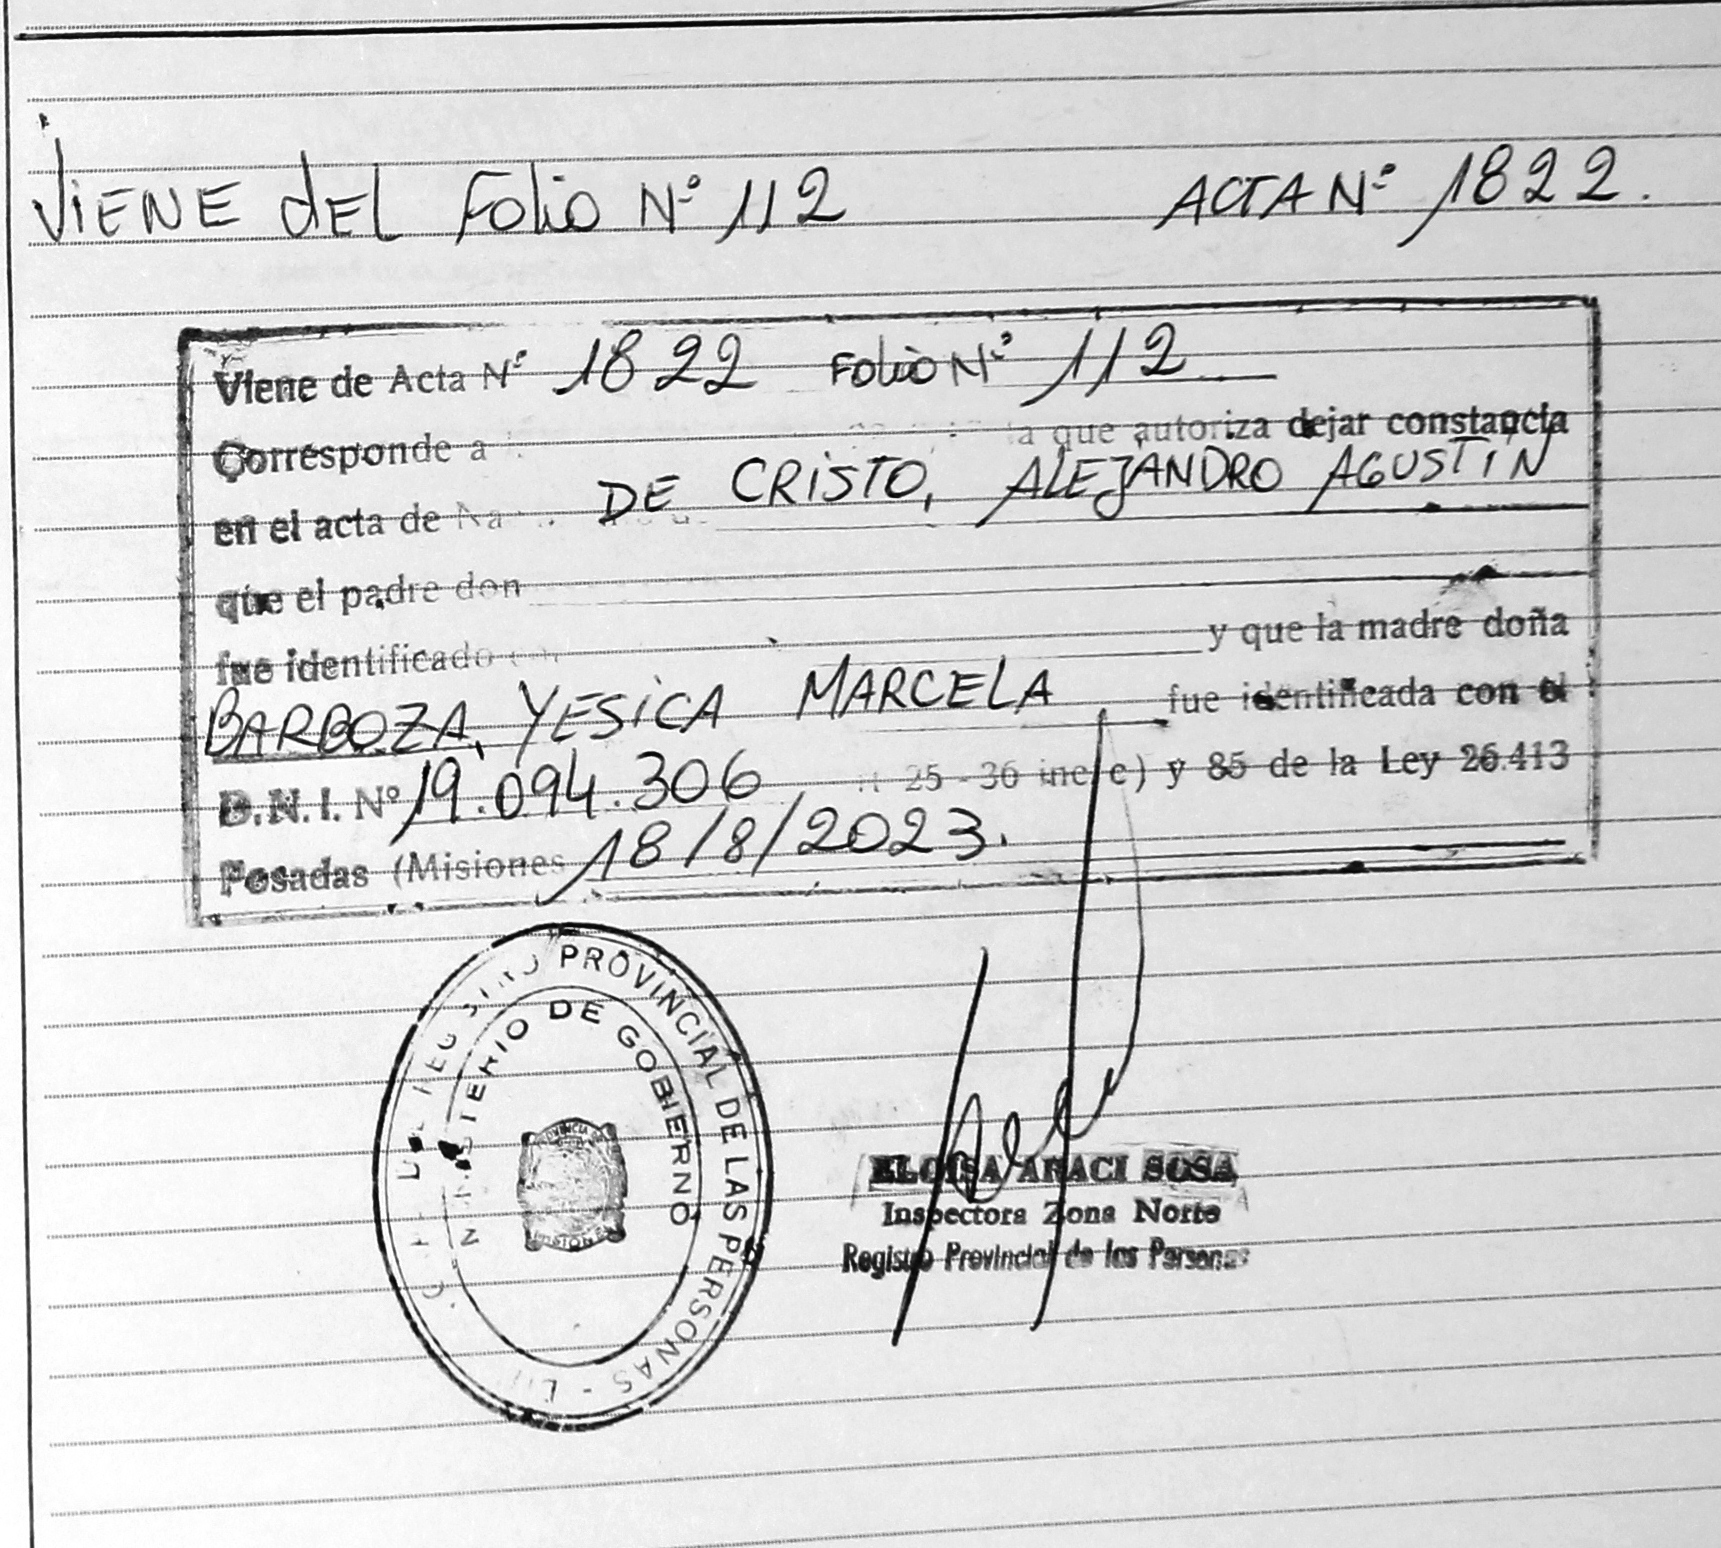 VIENE dEL Folio Nº 112 ACTA Nº 1822.
Viene de Acta Nº 1822 Folio Nº 112
Corresponde a la que autoriza dejar constancia
en el acta de DE CRISTO, ALEJANDRO AGUSTÍN
que el padre don
fue identificado y que la madre doña
BARBOZA, YESICA MARCELA fue identificada con el
D.N.I. Nº 19.094.306 25 - 36 inc e) y 85 de la Ley 26.413
Posadas (Misiones 18/8/2023.
PROVINCIAL DE LAS PERSONAS -
MINISTERIO DE GOBIERNO
PROVINCIA DE
MISIONES
ELOISA ARACI SOSA
Inspectora Zona Norte
Registro Provincial de las Personas